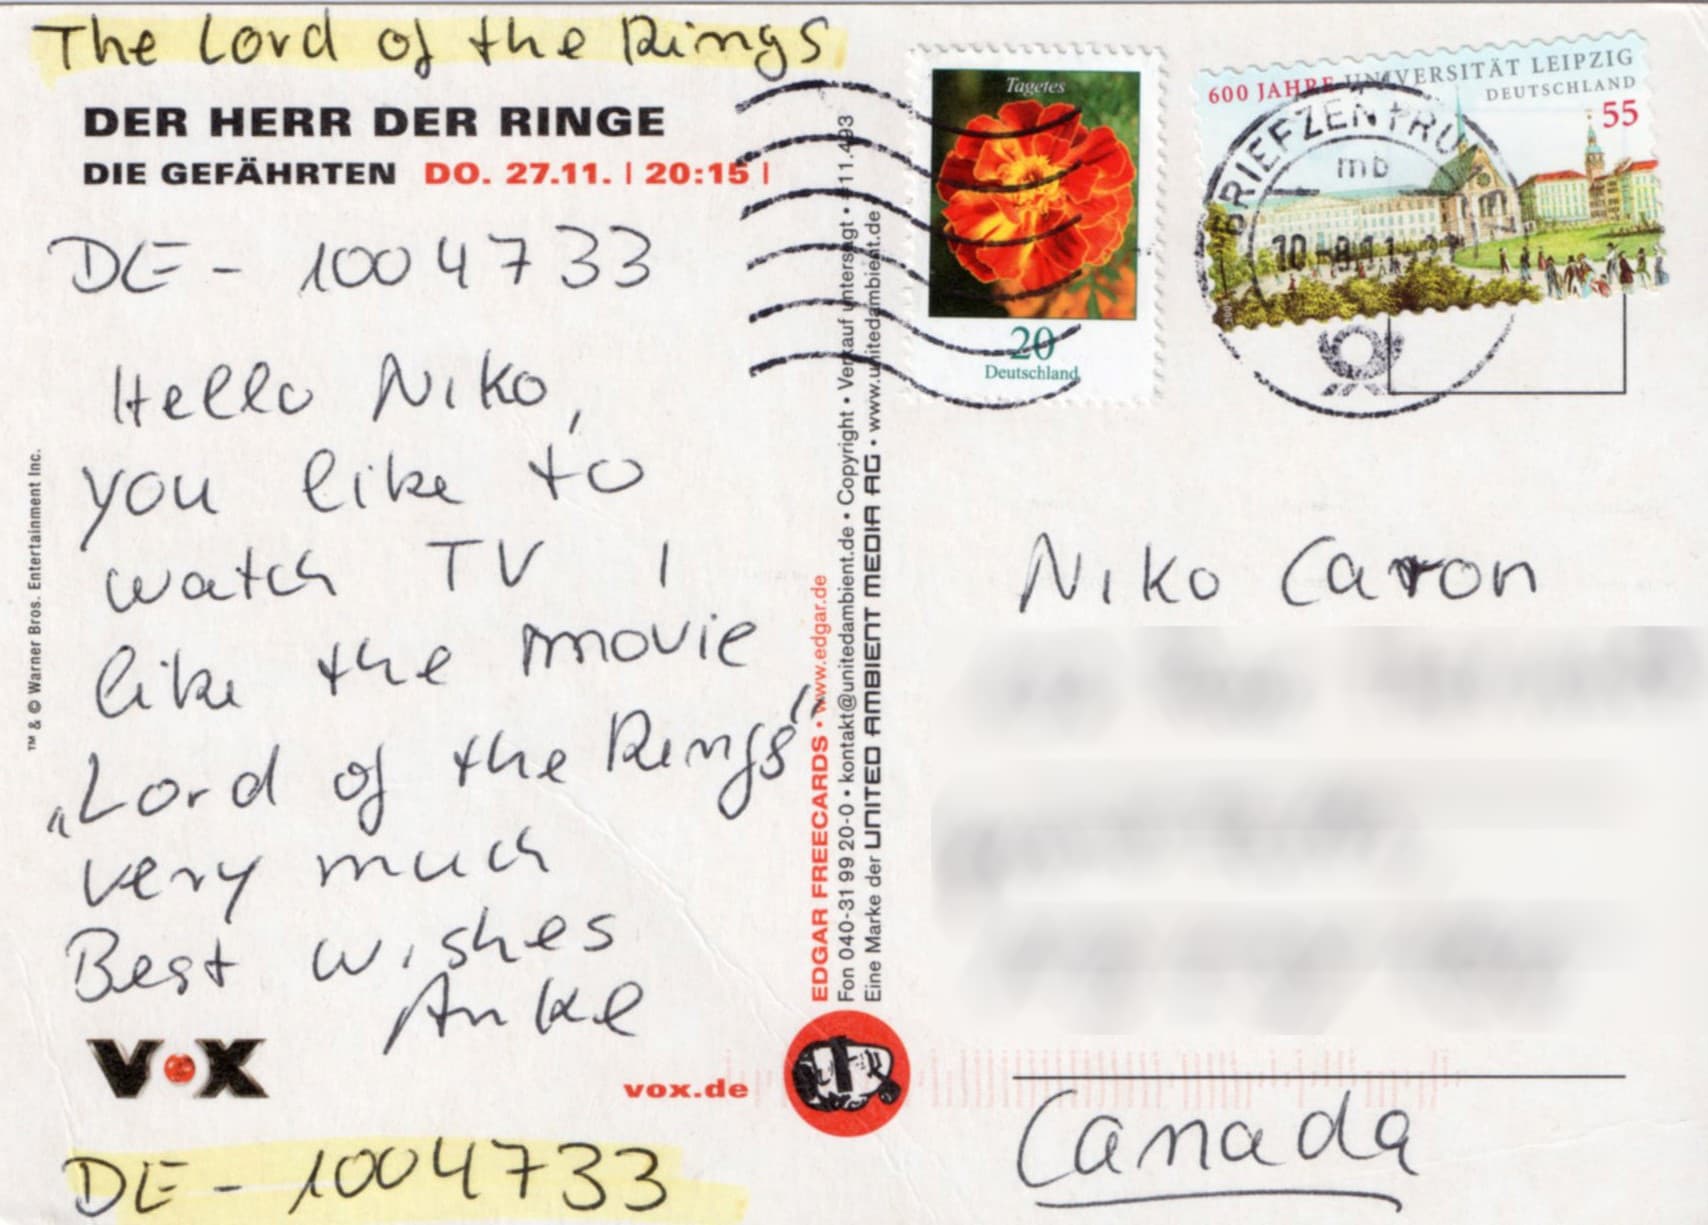 The Lord of the Rings
DER HERR DER RINGE
DIE GEFÄHRTEN DO. 27.11. | 20:15 |
DE - 1004733
Hello Niko,
you like to
watch TV I
like the movie
„Lord of the Rings“
very much
Best wishes
Anke
VOX
vox.de
DE - 1004733
TM & © Warner Bros. Entertainment Inc.
EDGAR FREECARDS • www.edgar.de
Fon 040-31 99 20-0 • kontakt@unitedambient.de • Copyright • Verkauf untersagt • #11.493
Eine Marke der UNITED AMBIENT MEDIA AG • www.unitedambient.de
Tagetes
20
Deutschland
600 JAHRE UNIVERSITÄT LEIPZIG
DEUTSCHLAND
55
BRIEFZENTRUM
mb
Niko Caron
Canada